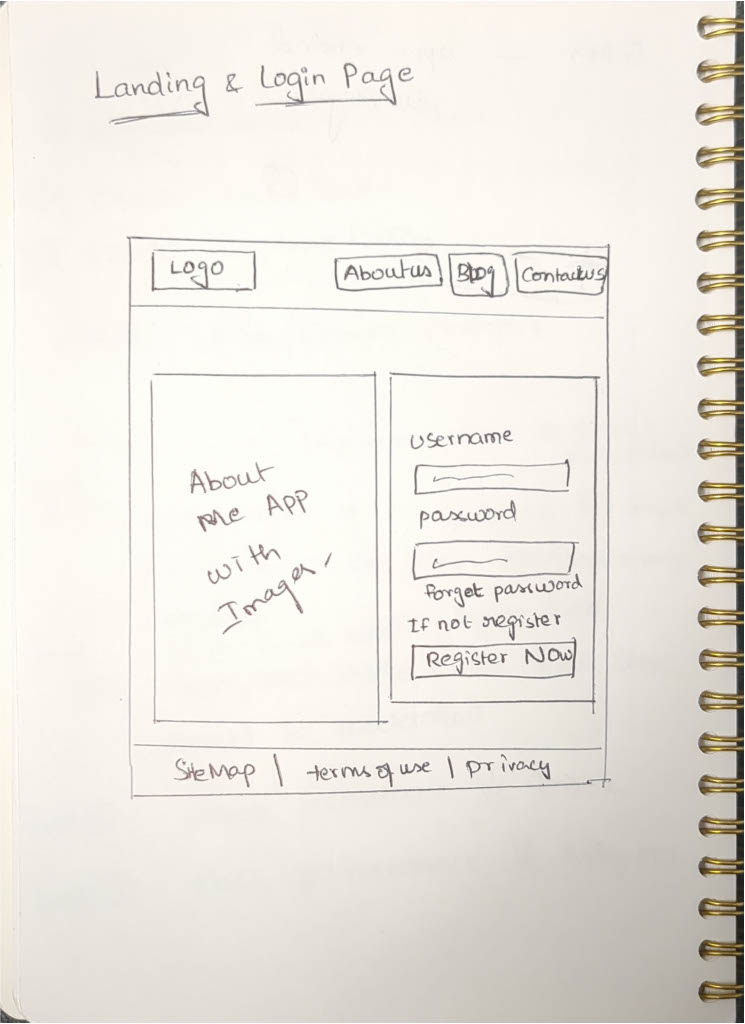 Landing & Login Page
Logo
About us
Blog
Contact us
About
me App
with
Images
username
password
forget password
If not register
Register Now
SiteMap | terms of use | privacy